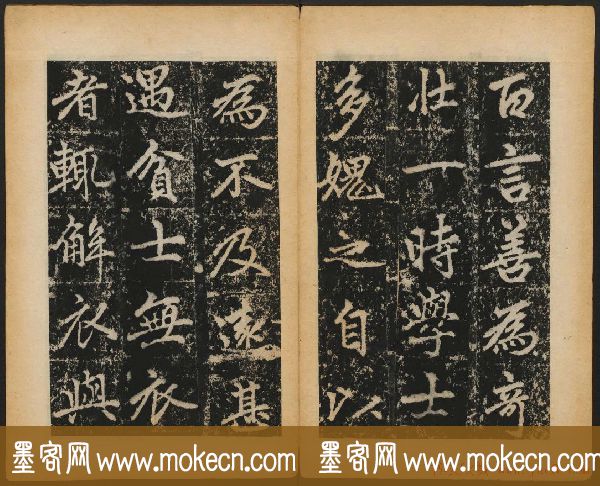 百言善為奇
壯一時學士
多媿之自以
為不及遠甚
遇貧士無衣
者輒解衣與
墨客网 www.mokecn.com 墨客网 www.mokecn.com